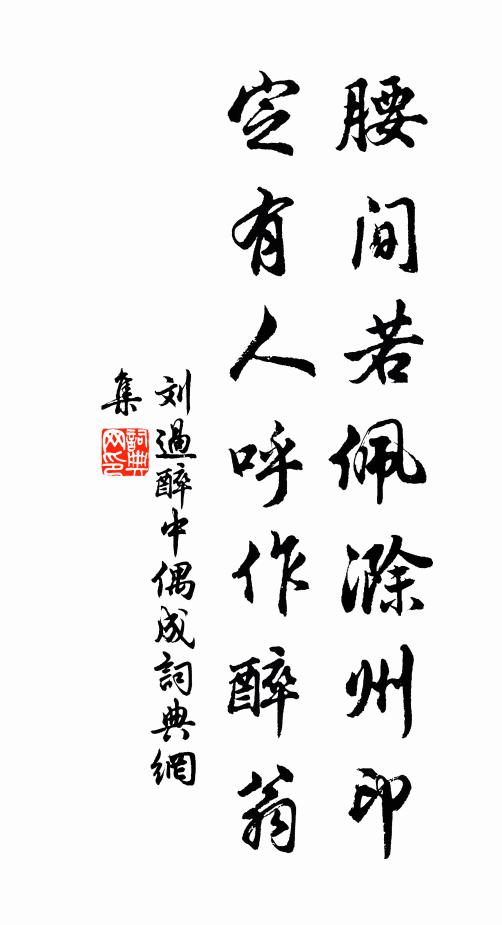 腰间若佩滁州印
定有人呼作醉翁
刘過醉中偶成詞典網
集
詞典
网印